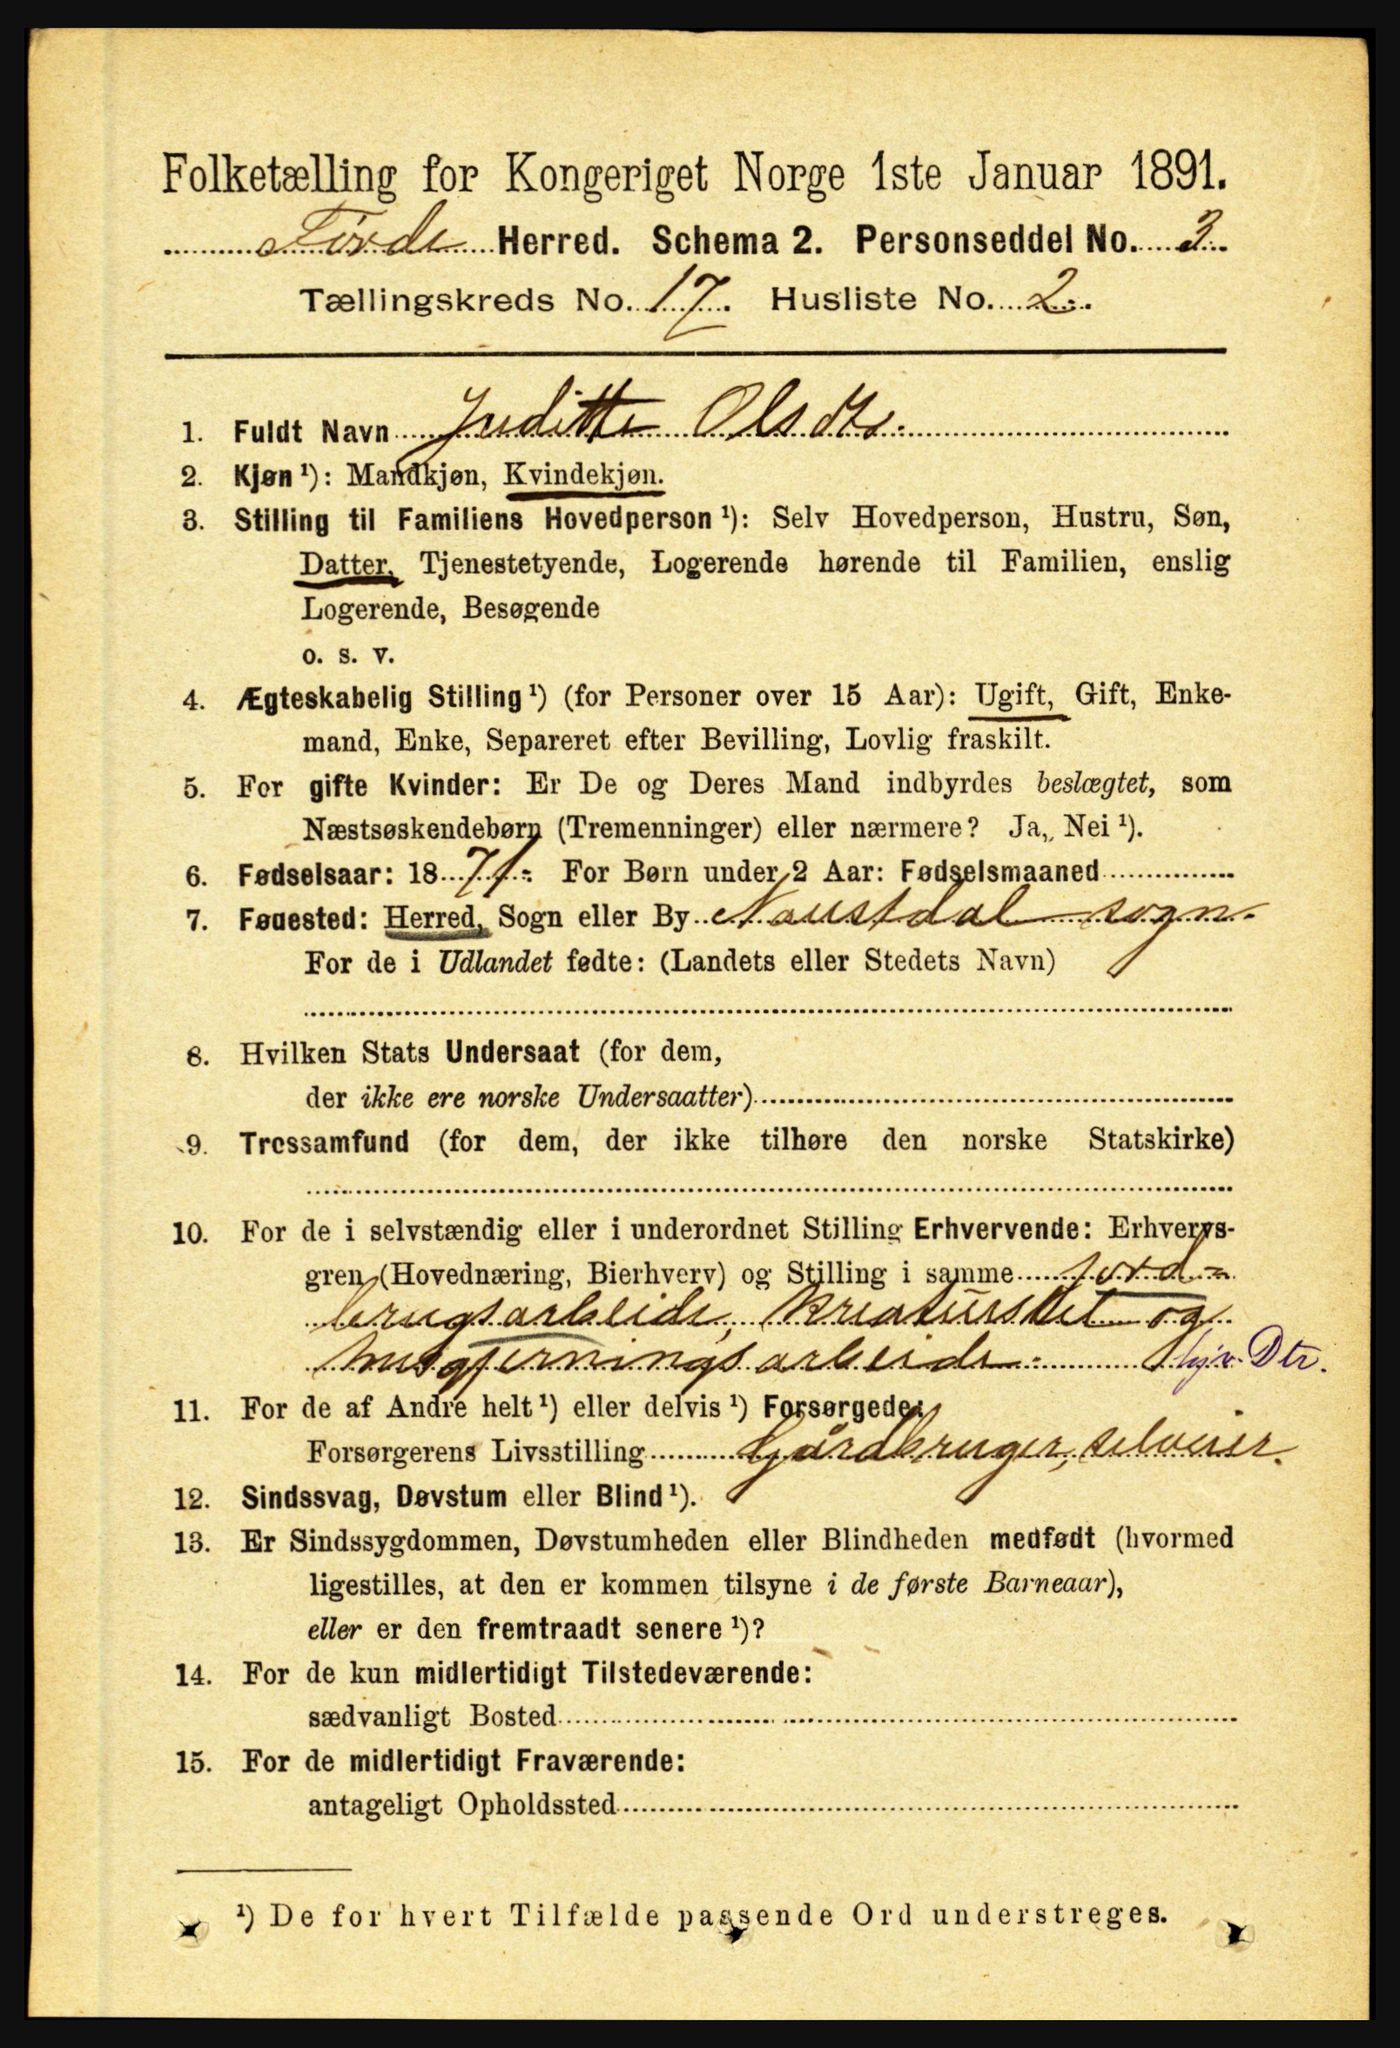 Folketælling for Kongeriget Norge 1ste Januar 1891.
Førde Herred. Schema 2. Personseddel No. 3.
Tællingskreds No. 17. Husliste No. 2.
1. Fuldt Navn Juditte Olsdtr.
2. Kjøn ¹): Mandkjøn, Kvindekjøn.
3. Stilling til Familiens Hovedperson ¹): Selv Hovedperson, Hustru, Søn,
Datter, Tjenestetyende, Logerende hørende til Familien, enslig
Logerende, Besøgende
o. s. v.
4. Ægteskabelig Stilling ¹) (for Personer over 15 Aar): Ugift, Gift, Enke-
mand, Enke, Separeret efter Bevilling, Lovlig fraskilt.
5. For gifte Kvinder: Er De og Deres Mand indbyrdes beslægtet, som
Næstsøskendebørn (Tremenninger) eller nærmere? Ja, Nei ¹).
6. Fødselsaar: 1871. For Børn under 2 Aar: Fødselsmaaned
7. Føuested: Herred, Sogn eller By Naustdal sogn.
For de i Udlandet fødte: (Landets eller Stedets Navn)
8. Hvilken Stats Undersaat (for dem,
der ikke ere norske Undersaatter)
9. Trossamfund (for dem, der ikke tilhøre den norske Statskirke)
10. For de i selvstændig eller i underordnet Stilling Erhvervende: Erhvervs-
gren (Hovednæring, Bierhverv) og Stilling i samme jord-
brugsarbeide, kreaturstel og
husgjerningsarbeide. hjv. Dtr.
11. For de af Andre helt ¹) eller delvis ¹) Forsørgede:
Forsørgerens Livsstilling Gårdbruger, selveier.
12. Sindssvag, Døvstum eller Blind ¹).
13. Er Sindssygdommen, Døvstumheden eller Blindheden medfødt (hvormed
ligestilles, at den er kommen tilsyne i de første Barneaar),
eller er den fremtraadt senere ¹)?
14. For de kun midlertidigt Tilstedeværende:
sædvanligt Bosted
15. For de midlertidigt Fraværende:
antageligt Opholdssted
¹) De for hvert Tilfælde passende Ord understreges.